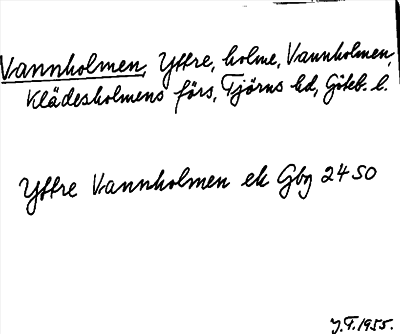 Vannholmen, Yttre, holme, Vannholmen,
Klädesholmens förs, Tjörns hd, Göteb. l.
Yttre Vannholmen ek Gbg 24 SO
J.T. 1955.